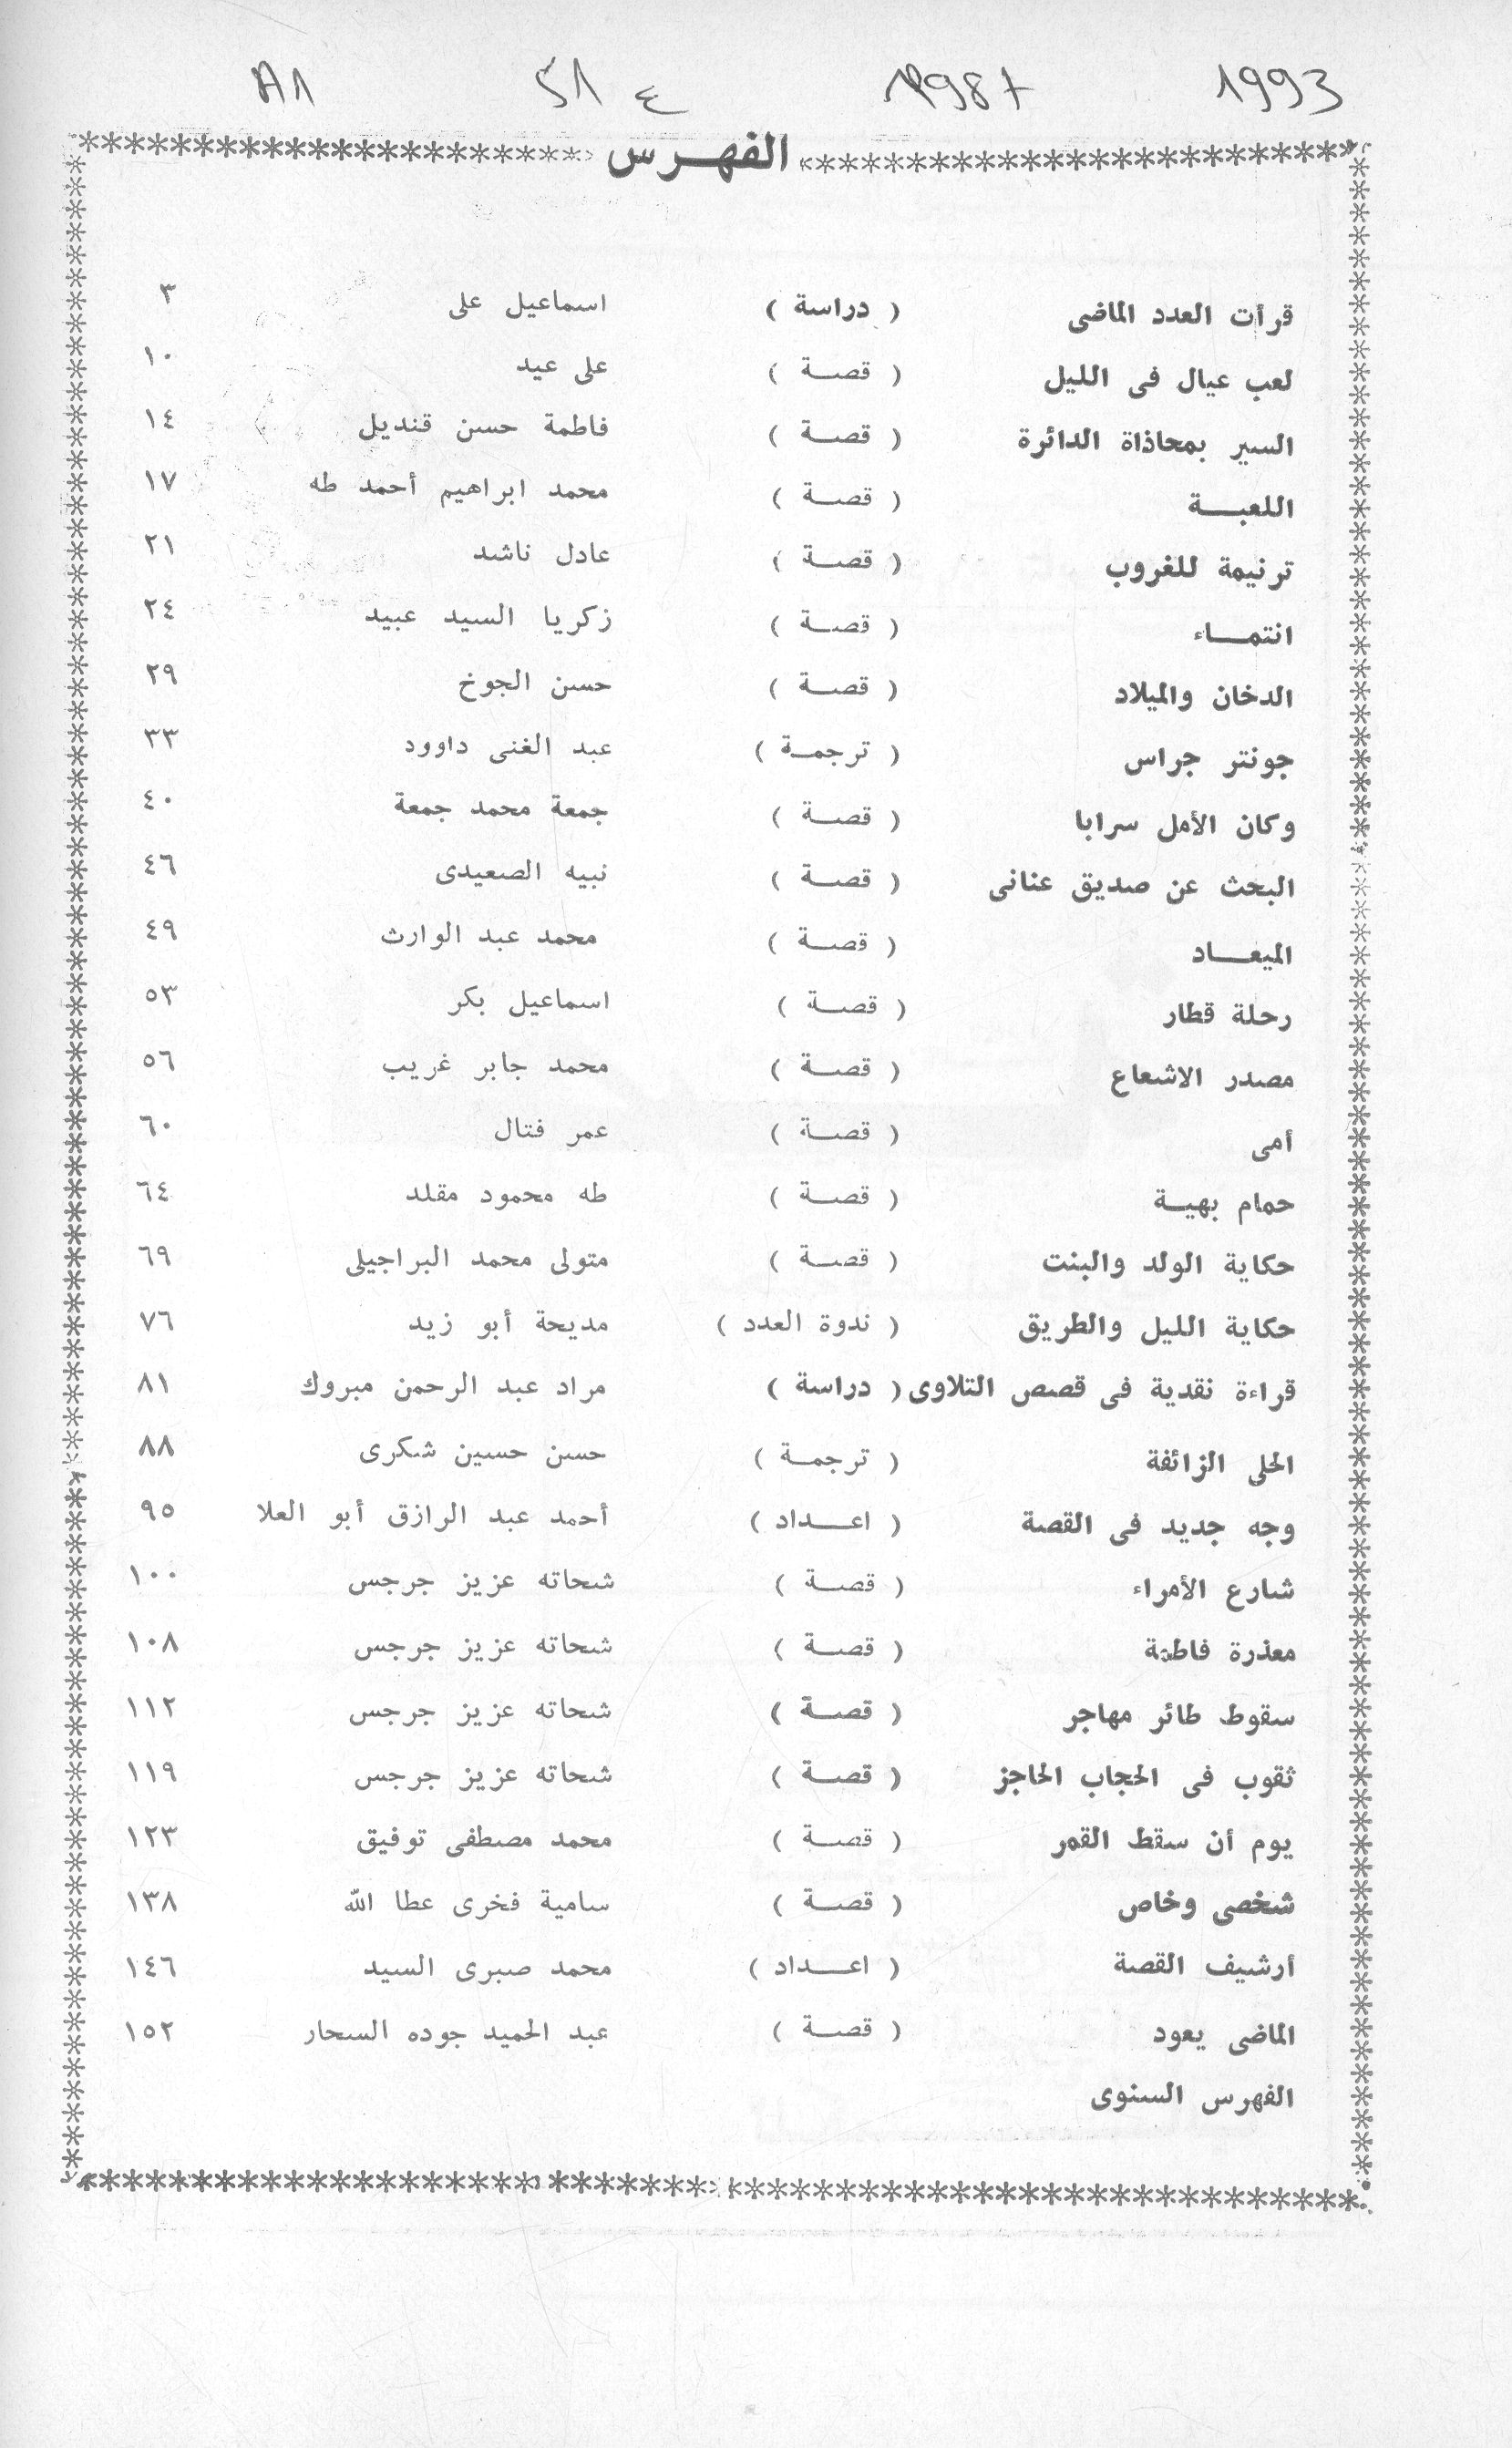 1993
الفهرس
قرأت العدد الماضى ( دراسة ) اسماعيل على ٣
لعب عيال فى الليل ( قصة ) على عيد ١٠
السير بمحاذاة الدائرة ( قصة ) فاطمة حسن قنديل ١٤
اللعبة ( قصة ) محمد ابراهيم أحمد طه ١٧
ترنيمة للغروب ( قصة ) عادل ناشد ٢١
انتماء ( قصة ) زكريا السيد عبيد ٢٤
الدخان والميلاد ( قصة ) حسن الجوخ ٢٩
جونتر جراس ( ترجمة ) عبد الغنى داوود ٣٣
وكان الأمل سرابا ( قصة ) جمعة محمد جمعة ٤٠
البحث عن صديق عنانى ( قصة ) نبيه الصعيدى ٤٦
الميعاد ( قصة ) محمد عبد الوارث ٤٩
رحلة قطار ( قصة ) اسماعيل بكر ٥٣
مصدر الاشعاع ( قصة ) محمد جابر غريب ٥٦
أمى ( قصة ) عمر فتال ٦٠
حمام بهية ( قصة ) طه محمود مقلد ٦٤
حكاية الولد والبنت ( قصة ) متولى محمد البراجيلى ٦٩
حكاية الليل والطريق ( ندوة العدد ) مديحة أبو زيد ٧٦
قراءة نقدية فى قصص التلاوى ( دراسة ) مراد عبد الرحمن مبروك ٨١
الحلى الزائفة ( ترجمة ) حسن حسين شكرى ٨٨
وجه جديد فى القصة ( اعداد ) أحمد عبد الرازق أبو العلا ٩٥
شارع الأمراء ( قصة ) شحاته عزيز جرجس ١٠٠
معذرة فاطمة ( قصة ) شحاته عزيز جرجس ١٠٨
سقوط طائر مهاجر ( قصة ) شحاته عزيز جرجس ١١٢
ثقوب فى الحجاب الحاجز ( قصة ) شحاته عزيز جرجس ١١٩
يوم أن سقط القمر ( قصة ) محمد مصطفى توفيق ١٢٣
شخصى وخاص ( قصة ) سامية فخرى عطا الله ١٣٨
أرشيف القصة ( اعداد ) محمد صبرى السيد ١٤٦
الماضى يعود ( قصة ) عبد الحميد جوده السحار ١٥٢
الفهرس السنوى